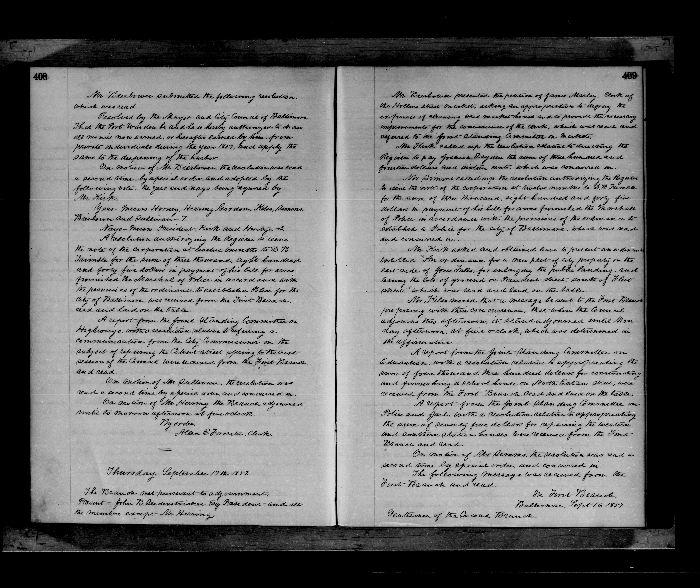 408
Mr Dukehart submitted the following resolution.
which was read
Resolved by the Mayor and City Council of Baltimore
That the Port Warden be and he is hereby authorized to
all now owned, or hereafter owned by him, from
private individuals during the year 1857, and apply the
same to the deepening of the harbor
On motion of Mr the resolution was read
a second time by special order and adopted by the
following vote. the yeas and nays being required by
Mr Kirk.
Yeas. Messrs Horney, Herring Stordom, Kiles, Ammons
and Sullivan - 7
Nays - Messrs President, Kirk and
A resolution authorizing the Register to issue
the note of the Corporation at twelve months to
for the sum of three thousand, eight hundred
and forty five dollars in payment of his bill for
furnished the Marshal of Police in accordance with
the provisions of the ordinance to establish a Police for the
City of Baltimore was received from the First Branch,
read and laid on the table
A report from the Joint Standing Committee on
Highways, with a resolution
communication from the City Commissioner on the
subject of
session of the Council were received from the First Branch
and read.
On motion of Mr Sullivan, the resolution was
read a second time by special order and concurred in.
On motion of Mr Herring the Branch adjourned
until to morrow afternoon at five o'clock
By order
Clerk.
Thursday September 17th 1857
The Branch met pursuant to adjournment,
Present - John T. Esq President and all
the members except Mr Herring
409
Mr Dukehart presented the petition of James Clerk of
the Hollins Street Market, asking an appropriation to defray the
expenses of cleaning said market house and to provide the necessary
improvements for the convenience of the clerk, which was read and
referred to the Joint Standing Committee on Markets,
Mr Kirk called up the resolution directing the
Register to pay Joshua Dryden the sum of three hundred and
fourteen dollars and sixteen cents, which was concurred in.
Mr Ammons called up the resolution authorizing the Register
to issue the note of the corporation at twelve months to
for the sum of three thousand, eight hundred and forty five
dollars in payment of his bill for furnished the Marshal
of Police in accordance with the provisions of the ordinance to
establish a Police for the City of Baltimore, which was read
and concurred in.
Mr Kirk asked and obtained leave to present an ordinance
entitled "An ordinance for a of city property on the
east side of Jones Falls, for enlarging the public landing, and
leasing the lots of ground on President street south of Fleet
street" which was read and laid on the table.
Mr Kiles moved that a message be sent to the First Branch
proposing with their concurrence, that when the Council
adjourns this afternoon, it stand adjourned until Mon
day afternoon, at five o'clock, which was determined in
the affirmative
A report from the Joint Standing Committee on
Education, with a resolution relative to appropriating the
sum of four thousand three hundred dollars for constructing
and furnishing a school house on North Street, were
received from the First Branch read and laid on the table.
A report from the Joint Standing Committee on
Police and Jail with a resolution relative to appropriating
the sum of seventy five dollars for repairing the
and station houses were received from the First
Branch and read.
On motion of Mr Ammons, the resolution was read a
second time by special order, and concurred in
The following message was received from the
First Branch and read.
In First Branch
Baltimore, Sept 16 1857
Gentlemen of the Second Branch